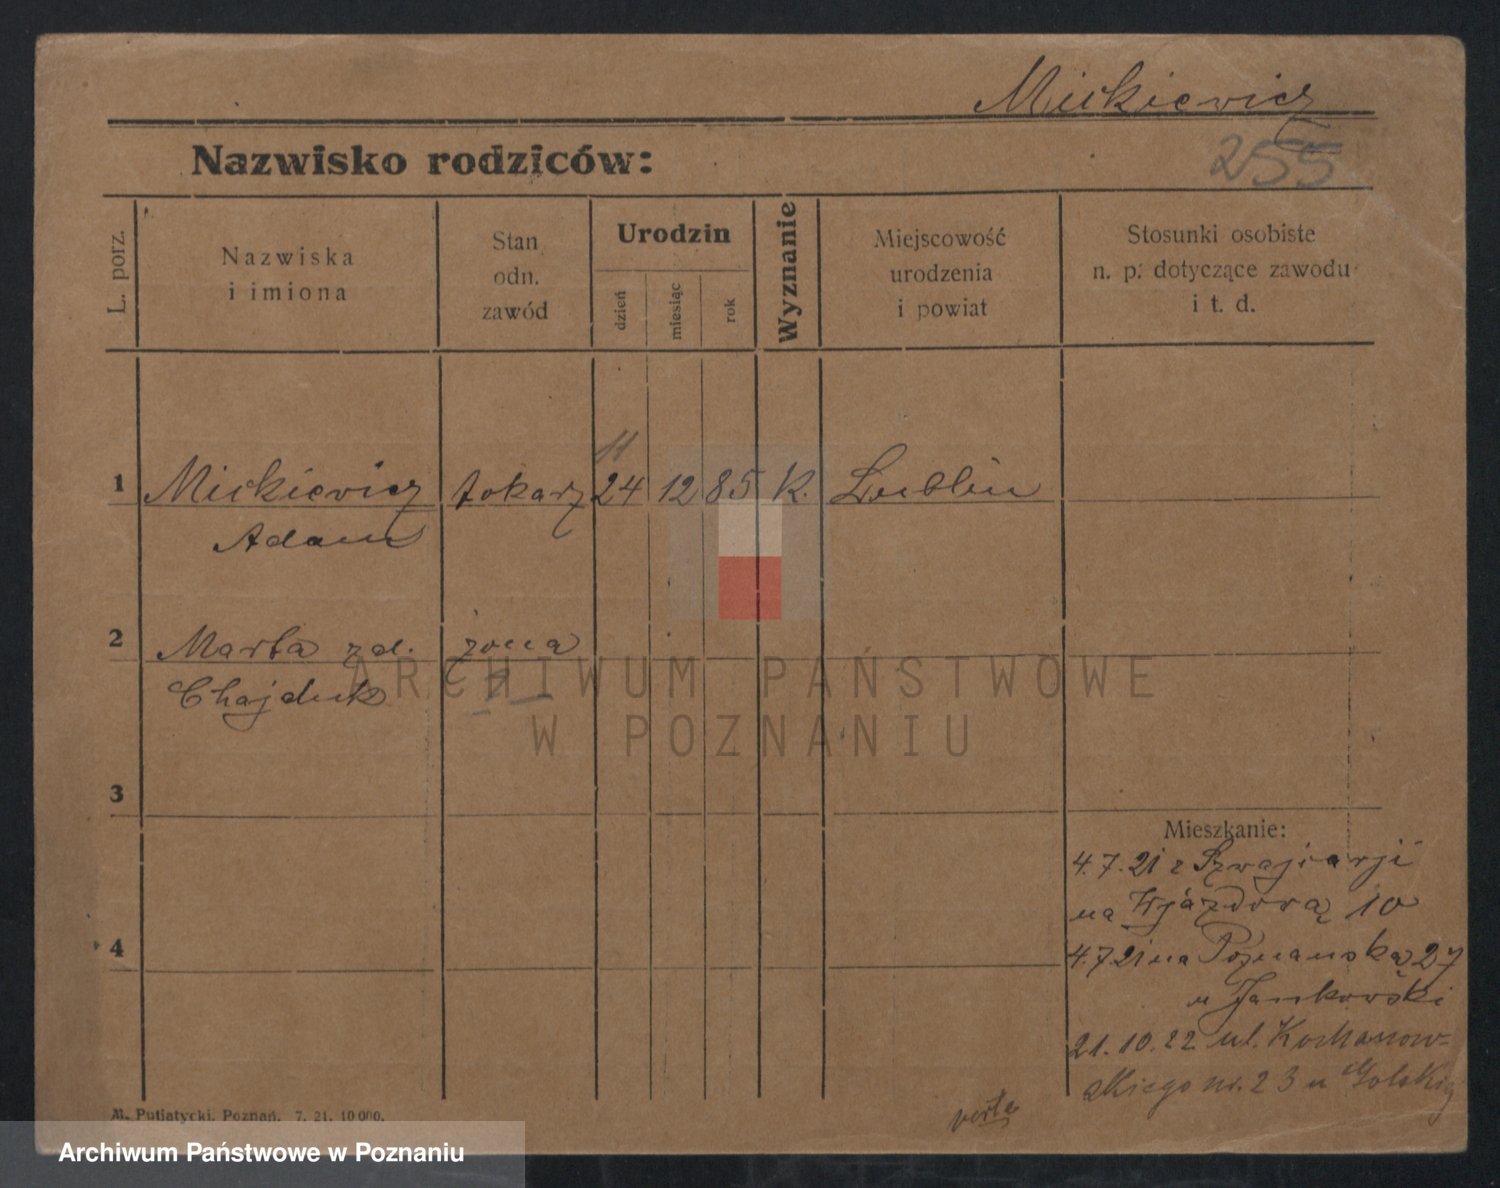 Mickiewicz
255
Nazwisko rodziców:
L. porz.
Nazwiska
i imiona
Stan
odn.
zawód
Urodzin
dzień
miesiąc
rok
Wyznanie
Miejscowość
urodzenia
i powiat
Stosunki osobiste
n. p. dotyczące zawodu
i t. d.
11
1 Mickiewicz tokarz 24 12 85 K. Lublin
Adam
2 Marta zd. żona
Chajduk
3
4
Mieszkanie:
4.7.21 z Szwajcarji
na Wjazdową 10
4.7.21 na Poznańską 27
u Jankowski
21.10.22 ul. Kochanow-
skiego nr. 23 u Golskiej
verte
M. Putiatycki, Poznań. 7. 21. 10 000.
ARCHIWUM PAŃSTWOWE
W POZNANIU
Archiwum Państwowe w Poznaniu